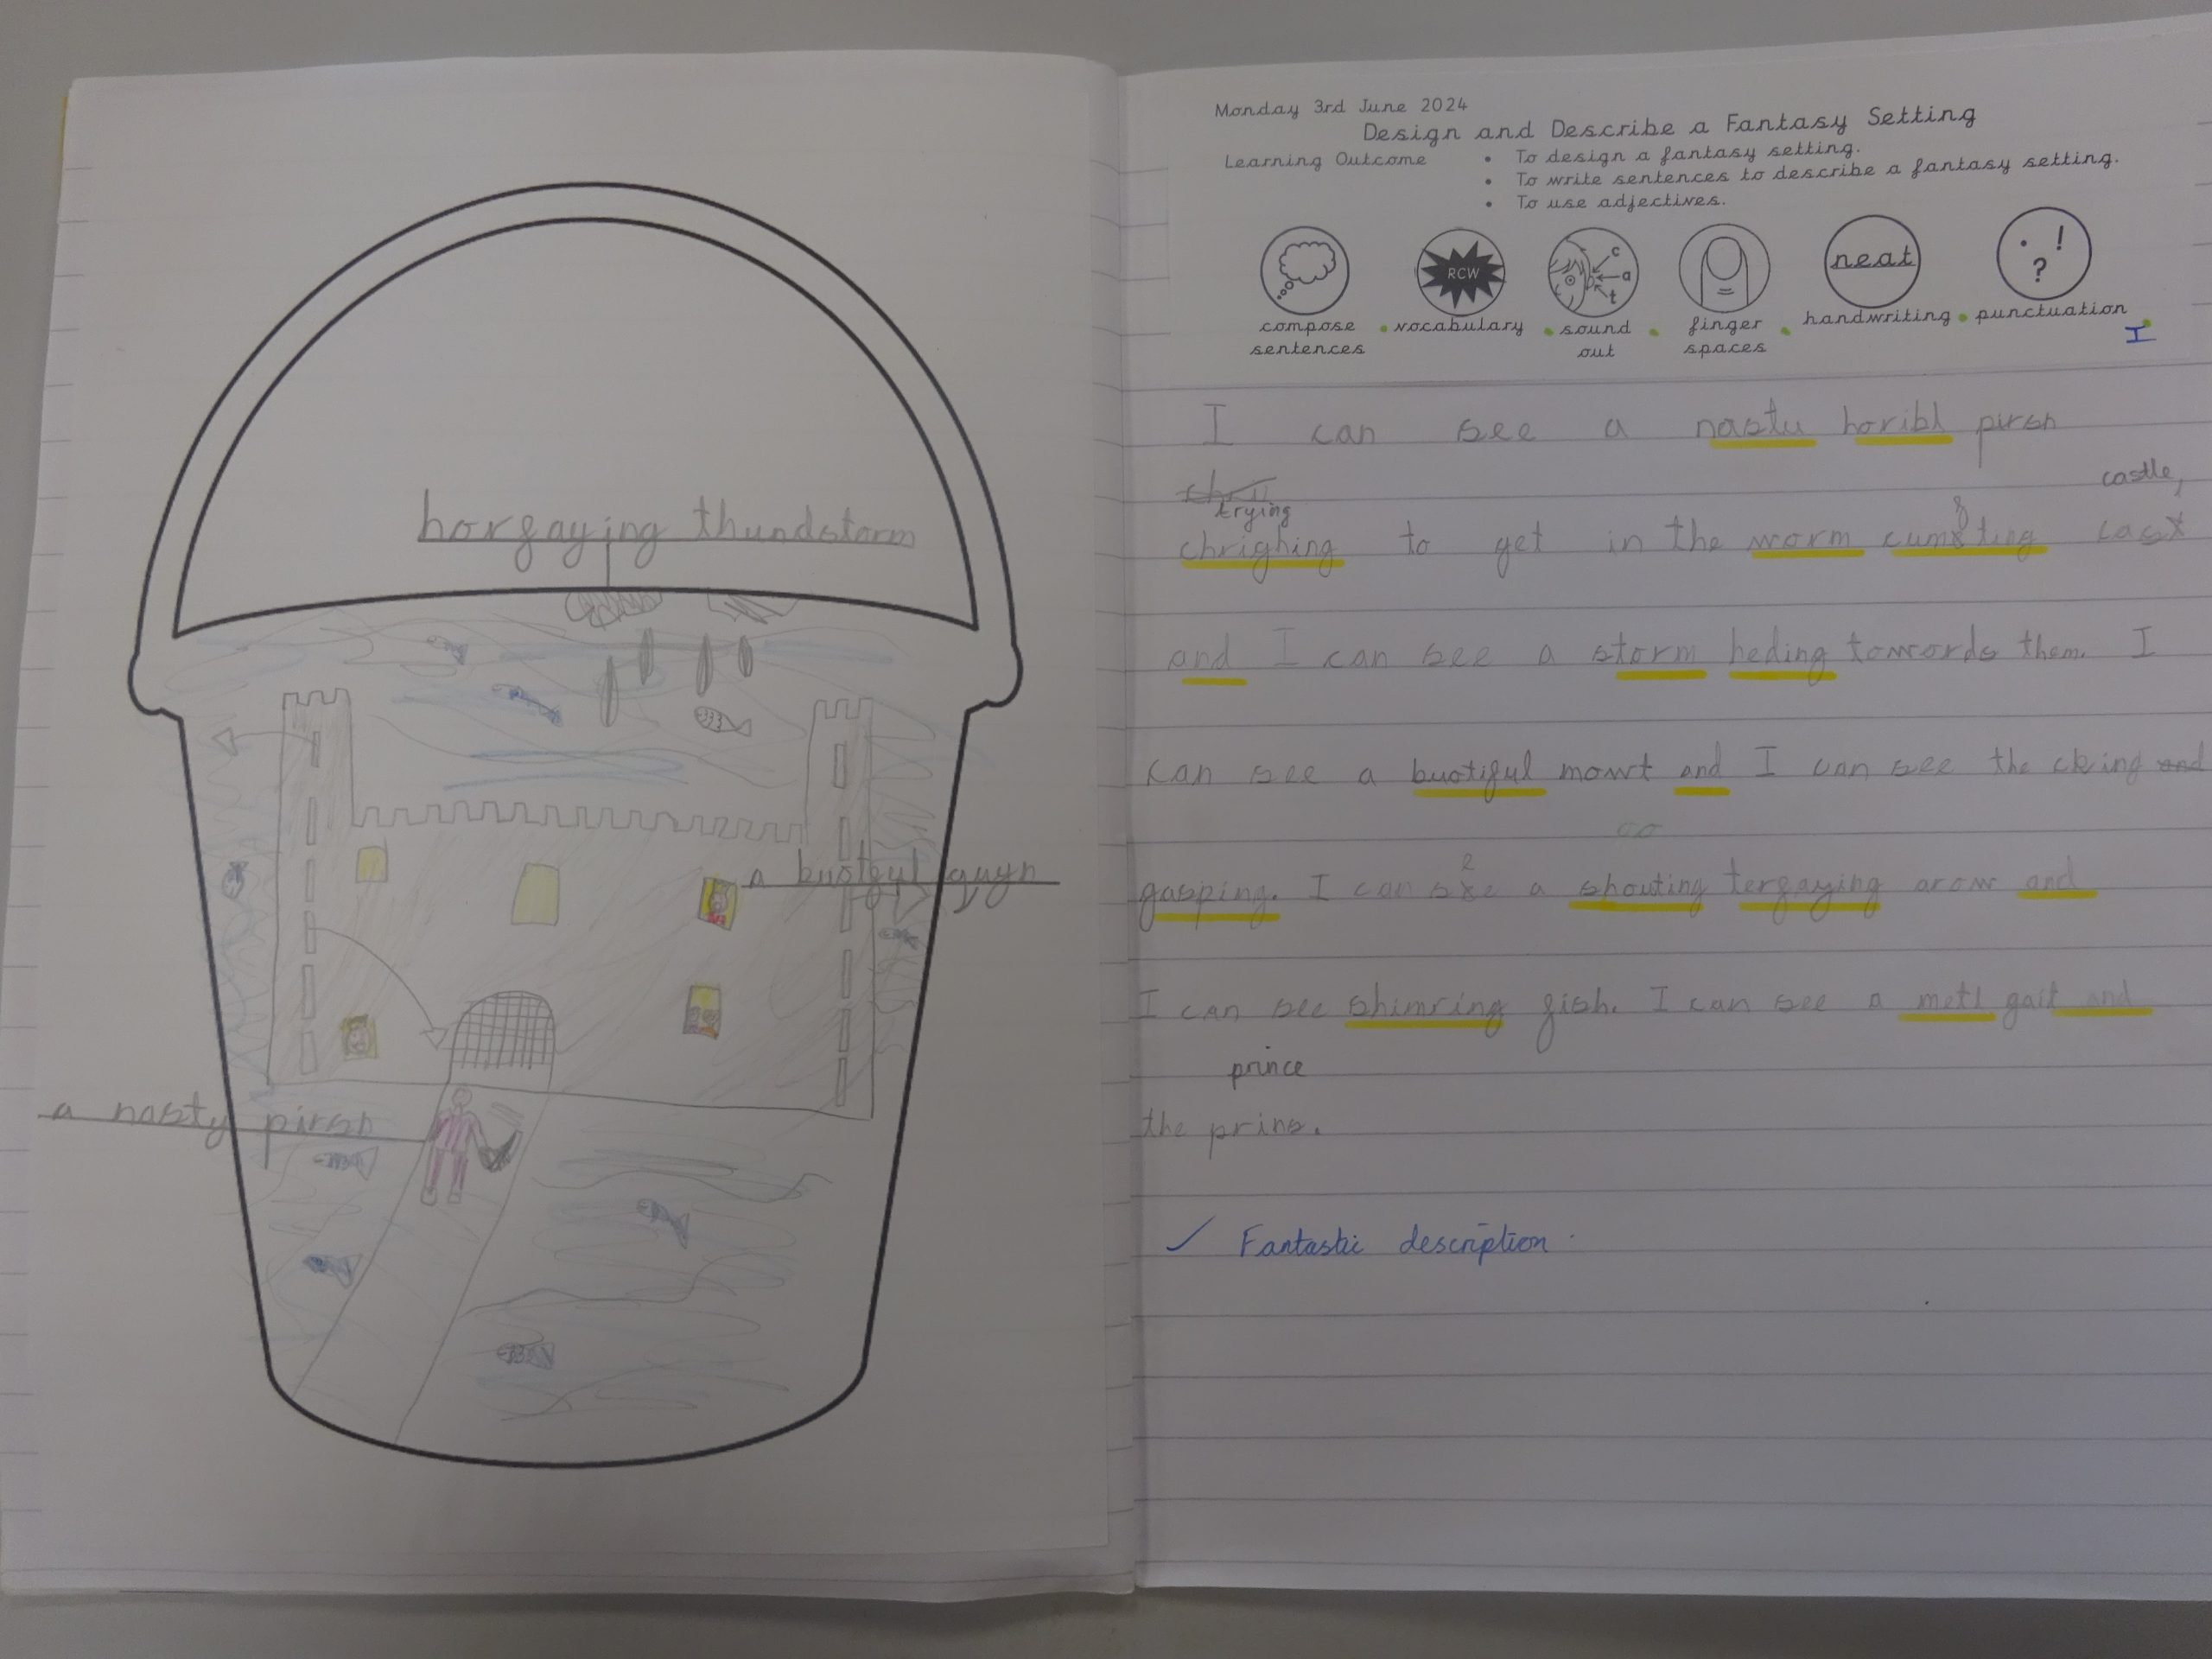 horfaying thundstorm
a buotful quyn
a nasty pirsn
Monday 3rd June 2024
Design and Describe a Fantasy Setting
Learning Outcome
• To design a fantasy setting.
• To write sentences to describe a fantasy setting.
• To use adjectives.
RCW
c
a
t
neat
. ! ?
compose sentences
vocabulary
sound out
finger spaces
handwriting
punctuation
I
I can see a nasty horibl pirsn
castle,
trying
chrighing to get in the worm cumfting cast
and I can see a storm heding towords them. I
can see a buotiful mowt and I can see the cking and
gasping. I can see a shouting terfaying arow and
I can see shimring fish. I can see a metl gait and
prince
the prins.
✓ Fantastic description.